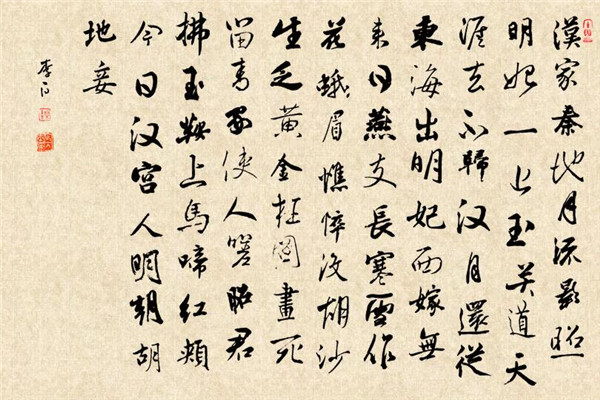 漢家秦地月流影照
明妃一上玉关道天
涯去不歸汉月還從
東海出明妃西嫁無
来日燕支長寒雪作
花蛾眉憔悴没胡沙
生乏黄金枉圖畫死
留青冢使人嗟昭君
拂玉鞍上馬啼红颊
今日汉宫人明朝胡
地妾
李白